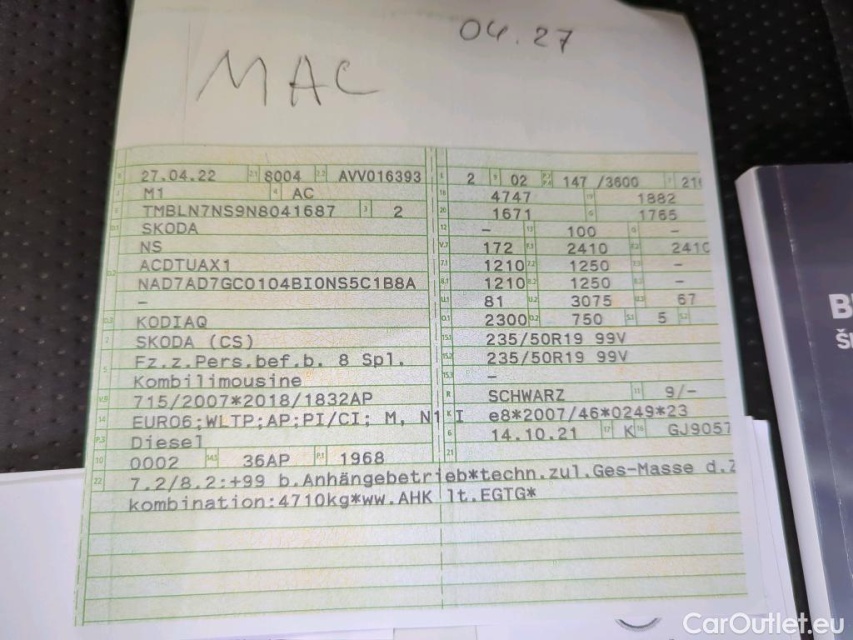 04.27
MAC
27.04.22 8004 AVV016393
M1 AC
TMBLN7NS9N8041687 2
SKODA
NS
ACDTUAX1
NAD7AD7GC0104BI0NS5C1B8A
–
KODIAQ
SKODA (CS)
Fz.z.Pers.bef.b. 8 Spl.
Kombilimousine
715/2007*2018/1832AP
EURO6;WLTP;AP;PI/CI; M, N1 I
Diesel
0002 36AP 1968
2 02 147 /3600
4747 1882
1671 1765
– 100 –
172 2410 2410
1210 1250 –
1210 1250 –
81 3075 67
2300 750 5
235/50R19 99V
235/50R19 99V
–
SCHWARZ 9/–
e8*2007/46*0249*23
14.10.21 K GJ9057
7.2/8.2:+99 b.Anhängebetrieb*techn.zul.Ges-Masse d.Z
kombination:4710kg*ww.AHK lt.EGTG*
CarOutlet.eu